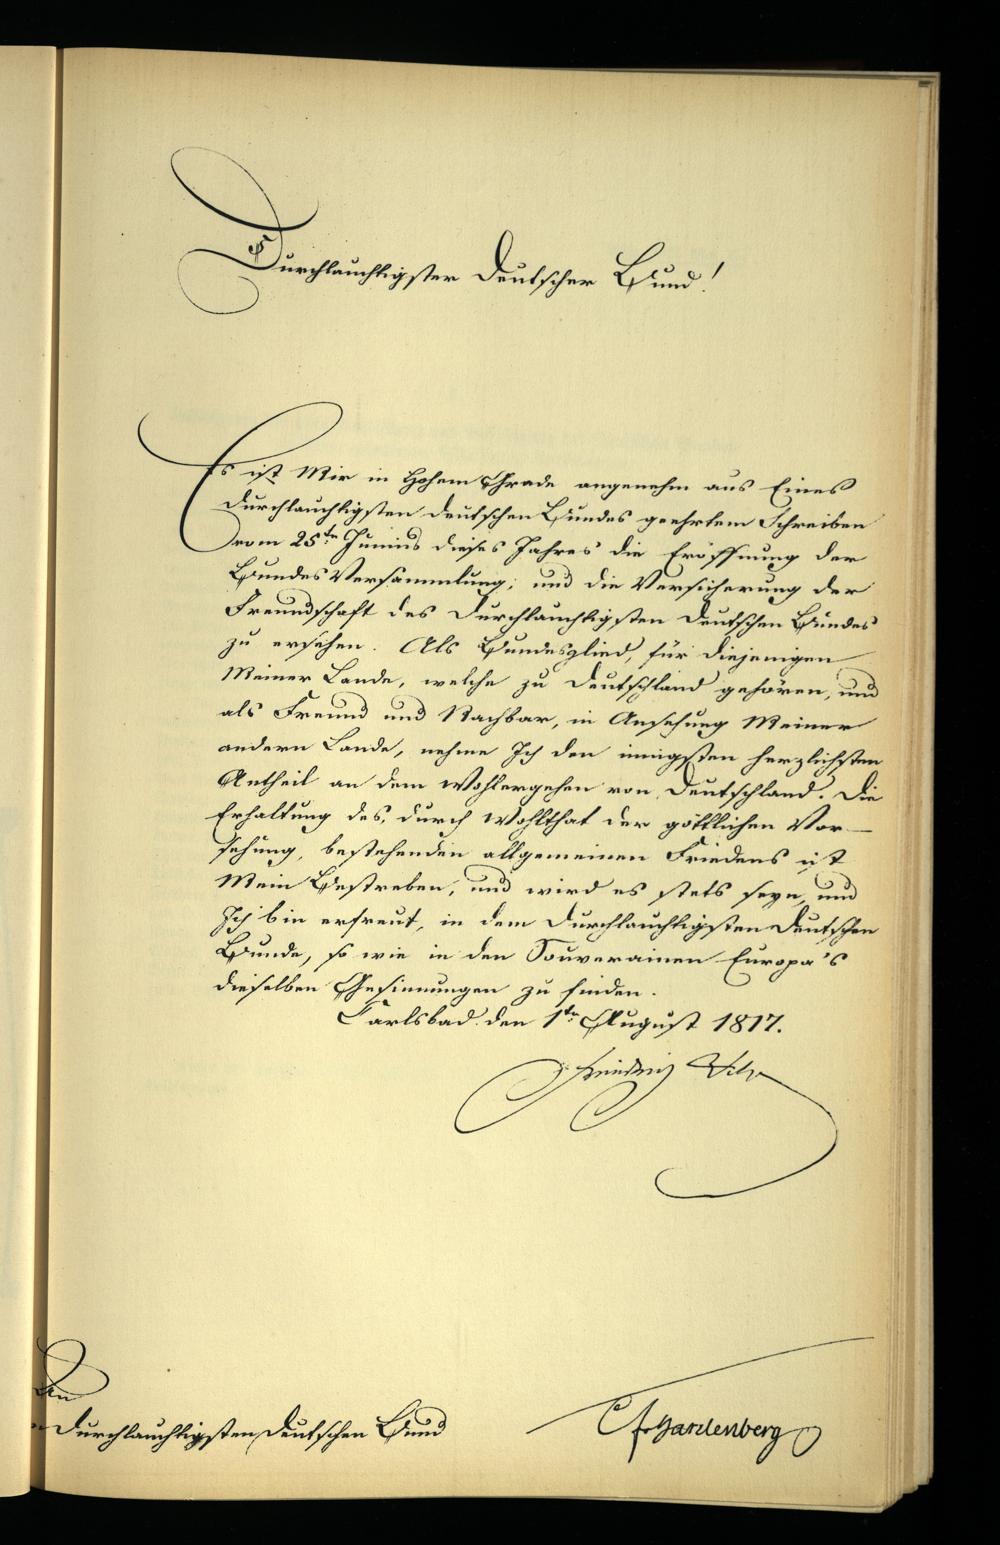 Durchlauchtigster Deutscher Bund!
Es ist Mir in hohem Grade angenehm aus Eines
Durchlauchtigsten Deutschen Bundes geehrtem Schreiben
vom 25ten Junius dieses Jahres die Eröffnung der
Bundes Versammlung, und die Versicherung der
Freundschaft des Durchlauchtigsten Deutschen Bundes
zu ersehen. Als Bundesglied, für diejenigen
Meiner Lande, welche zu Deutschland gehören, und
als Freund und Nachbar, in Ansehung Meiner
andern Lande, nehme Ich den innigsten herzlichsten
Antheil an dem Wohlergehen von Deutschland. Die
Erhaltung des, durch Wohlthat der göttlichen Vor-
sehung, bestehenden allgemeinen Friedens ist
Mein Bestreben, und wird es stets seyn, und
Ich bin erfreut, in dem Durchlauchtigsten Deutschen
Bunde, so wie in den Souverainen Europa's
dieselben Gesinnungen zu finden.
Carlsbad den 1ten August 1817.
Friedrich Wilh
An
Durchlauchtigsten Deutschen Bund
CfvHardenberg